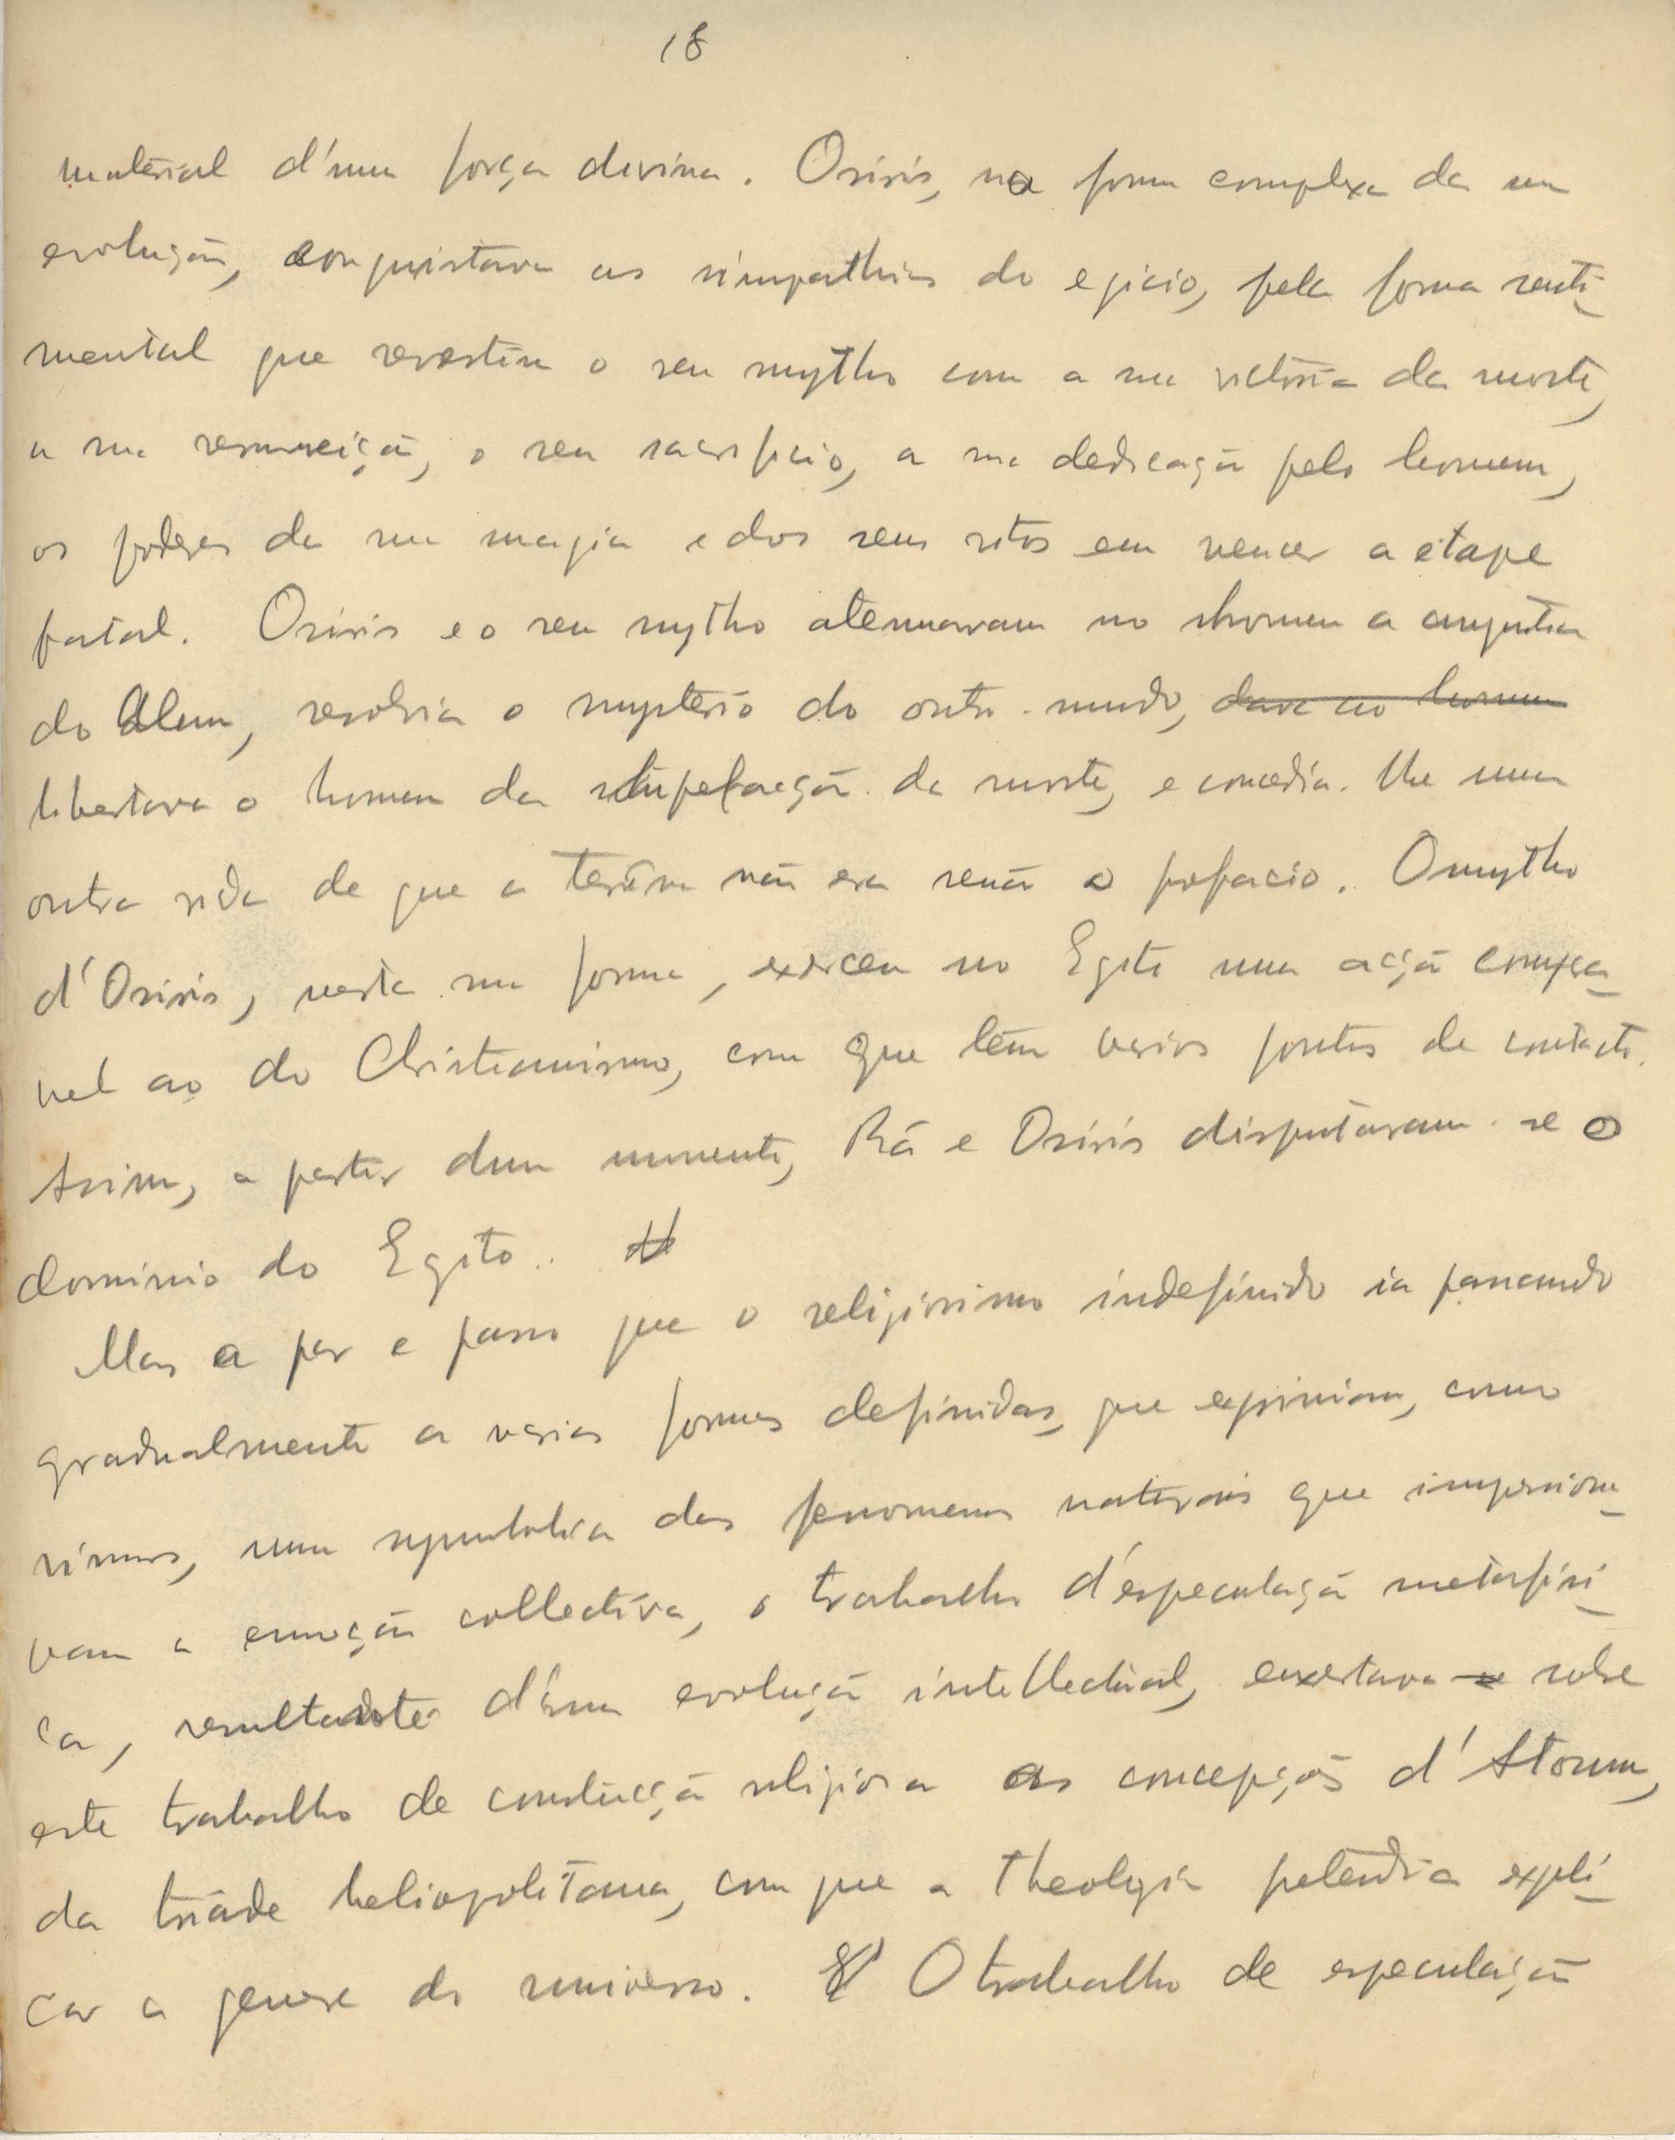 18
material d'uma força divina. Osiris, na forma complexa da sua
evolução, conquistava as simpathias do egicio, pela forma senti-
mental que revestiu o seu mytho com a sua victoria da morte,
a sua ressurreição, o seu sacrificio, a sua dedicação pelo homem,
os poderes da sua magia e dos seus ritos em vencer a etape
fatal. Osiris e o seu mytho atenuavam no homem a angustia
do Alem, resolvia o mysterio do outro-mundo, dava ao homem
libertava o homem da stupefacção da morte, e concedia-lhe uma
outra vida de que a terrena não era senão o prefacio. O mytho
d'Osiris, nesta sua forma, exerceu no Egito uma acção compara-
vel ao do Christianismo, com que têm varios pontos de contacto.
Assim, a partir dum momento, Râ e Osiris disputavam-se o
dominio do Egito.
Mas a par e passo que o religiosismo indefinido ia passando
gradualmente a varias formas definidas, que exprimiam, como
vimos, uma symbolica dos fenomenos naturais que impressiona-
vam a emoção collectiva, o trabalho d'especulação metafisi-
ca, resultante d'uma evolução intellectual, enxertava se sobre
este trabalho de construcção religiosa as concepções d'Atoum,
da triade heliopolitana, com que a theologia pretendia expli-
car a genese do universo. O trabalho de especulação